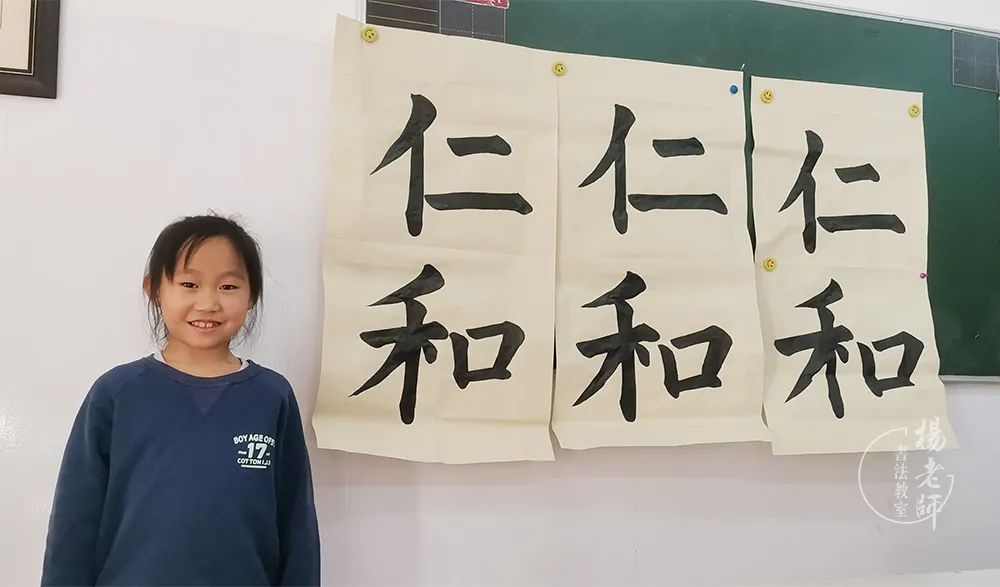 仁和
仁和
仁和
BOY AGE OF
-17-
COTTON
楊老師
書法教室